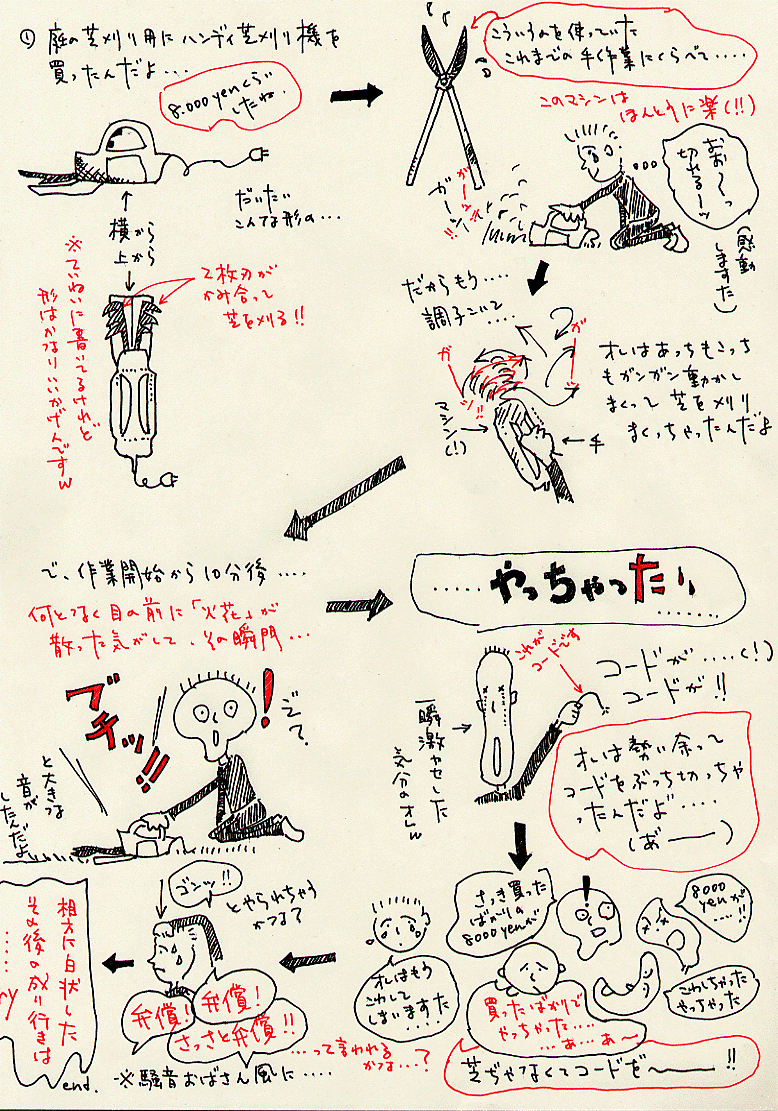 ① 庭の芝刈り用にハンディ芝刈り機を
買ったんだよ...
8.000yenくらい
したね.
だいたい
こんな形の...
横から
上から
2枚刃が
かみ合って
芝を刈る!!
※ていねいに書いてるけれど
形はかなりいいかげんですw
こういうのを使っていた
これまでの手作業にくらべて....
このマシンは
ほんとうに楽(!!)
おぉ〜っ
切れるーッ
(感動
しますた)
ガーッ
ガーッ
だからもう....
調子こいて...
ガ
ガ
ガ
マシン(!)
手
オレはあっちもこっち
もガンガン動かし
まくって芝をメリリ
まくっちゃったんだよ
で、作業開始から10分後....
何となく目の前に「火花」が
散った気がして、その瞬間...
ブチッ!!
!
と大きな
音が
したんだよ
.....やっちゃった!!
......
これが
コードです
コードが....(!)
コードが!!
一瞬激ヤセした
気分のオレw
オレは勢い余って
コードをぶっち切っちゃ
ったんだよ.....
(あ゛ー)
さっき買った
ばかりの
8000yenが
!
8000
yenが
...!!
こわしちゃった
やっちゃった
買ったばかりで
やっちゃった....
...ぁ...ぁ〜
芝ぢゃなくてコードを〜!!
オレはもう
こわして
しまいますた
....
ゴンッ!!
とやられちゃう
かな?
弁償!
弁償!
さっさと弁償!!
...って言われる
かな...?
※騒音おばさん風に....
相方に白状した
その後の成り行きは
......ry
end.